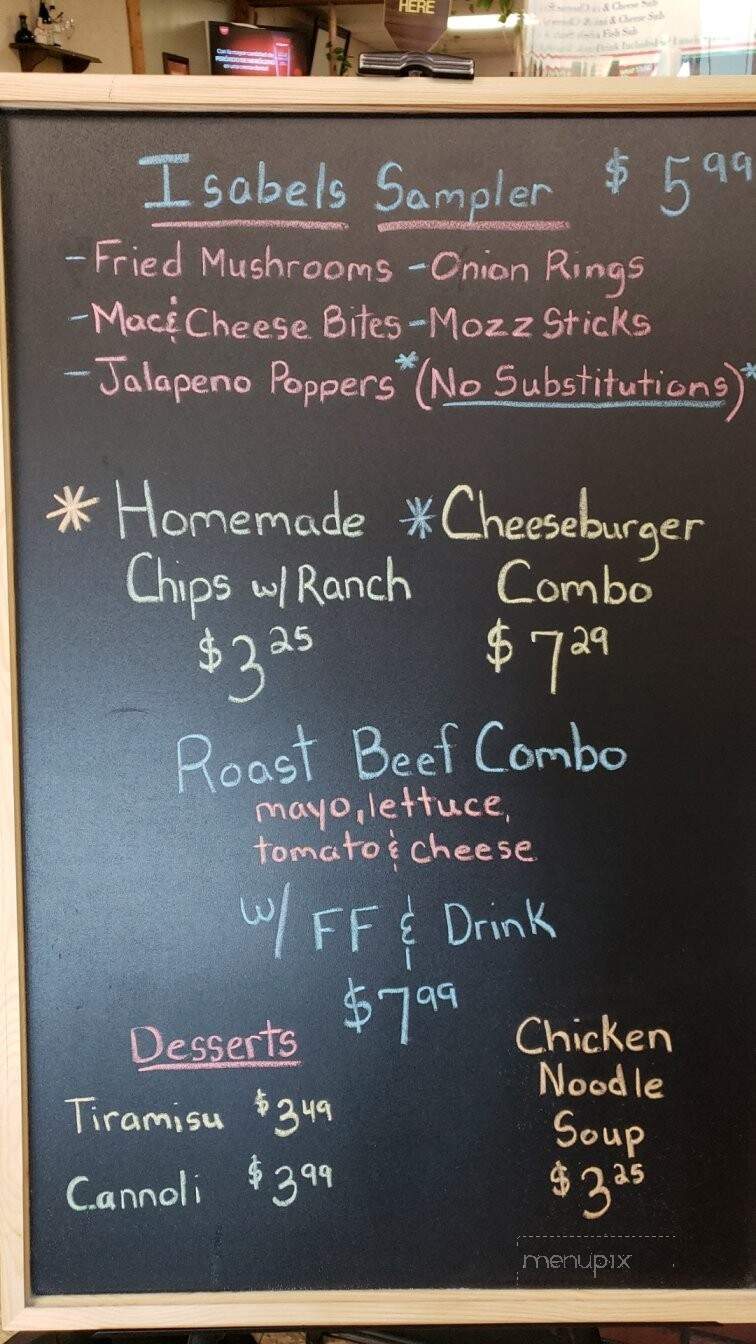 HERE
& Cheese Sub
& Cheese Sub
Fish Sub
Isabels Sampler $5.99
-Fried Mushrooms -Onion Rings
-Mac & Cheese Bites -Mozz Sticks
-Jalapeno Poppers *(No Substitutions)*
* Homemade
Chips w/ Ranch
$3.25
* Cheeseburger
Combo
$7.29
Roast Beef Combo
mayo, lettuce,
tomato & cheese
w/ FF & Drink
$7.99
Desserts
Tiramisu $3.49
Cannoli $3.99
Chicken
Noodle
Soup
$3.25
menupix